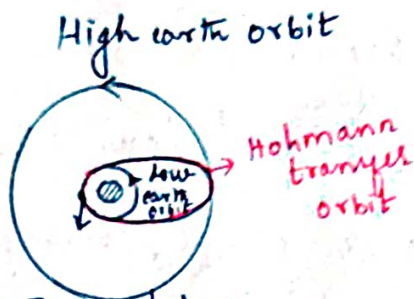 High earth orbit
Low
earth
orbit
Hohmann
transfer
orbit